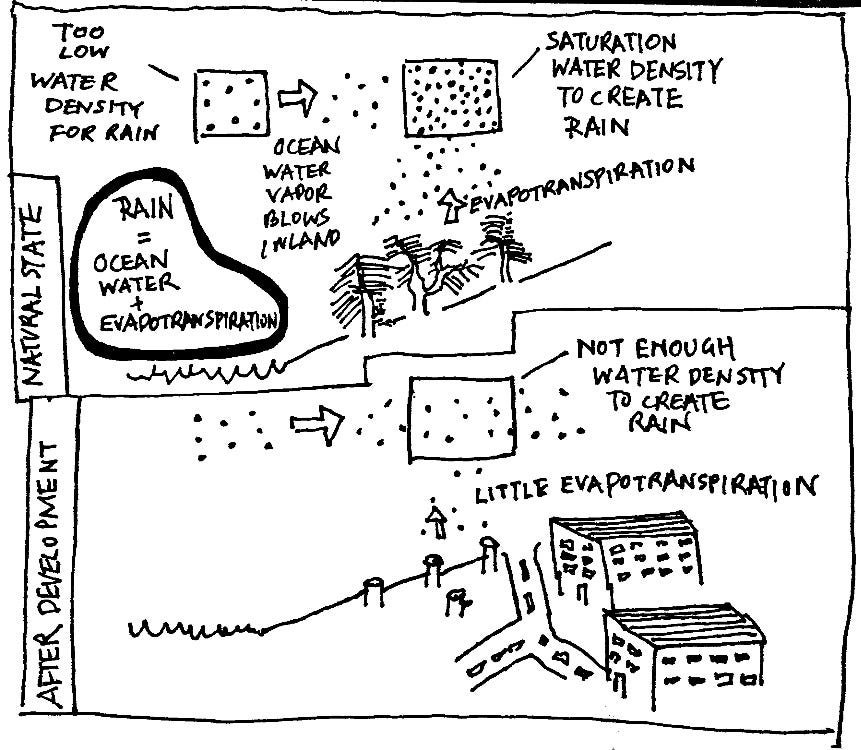 TOO
LOW
WATER
DENSITY
FOR RAIN
OCEAN
WATER
VAPOR
BLOWS
INLAND
SATURATION
WATER DENSITY
TO CREATE
RAIN
EVAPOTRANSPIRATION
NATURAL STATE
RAIN
=
OCEAN
WATER
+
EVAPOTRANSPIRATION
NOT ENOUGH
WATER DENSITY
TO CREATE
RAIN
LITTLE EVAPOTRANSPIRATION
AFTER DEVELOPMENT